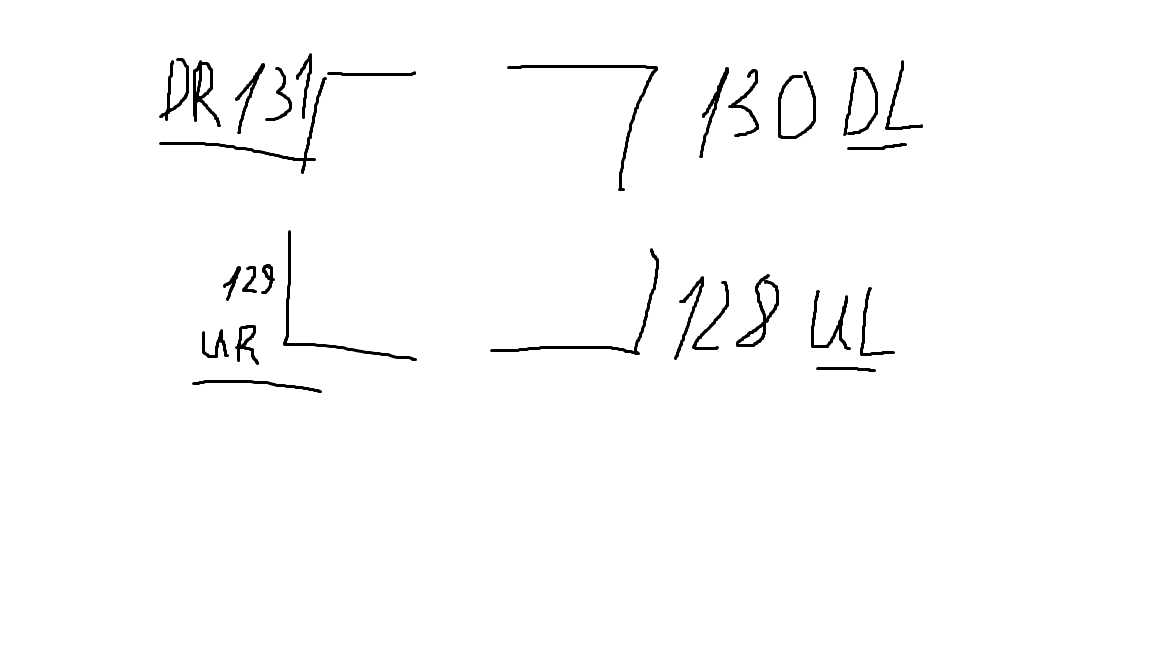 DR 131 130 DL
129 128 UL
UR